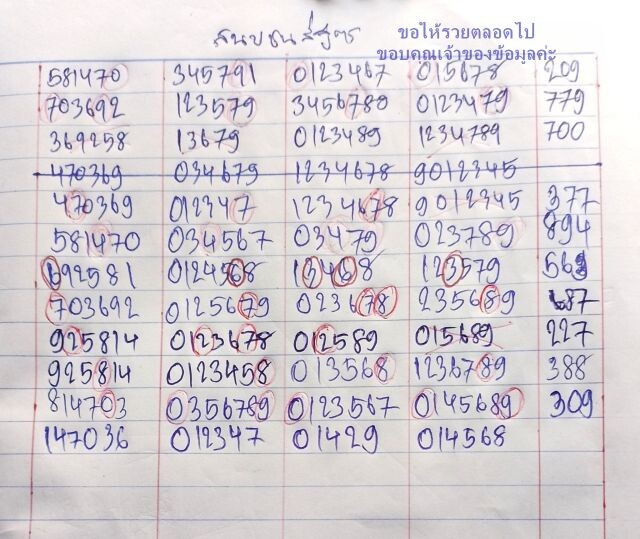 สนบชนสี่สูตร
ขอให้รวยตลอดไป
ขอบคุณเจ้าของข้อมูลค่ะ
581470 345791 0123467 015678 209
703692 123579 3456780 0123479 779
369258 13679 0123489 1234789 700
470369 034679 1234678 9012345
470369 012347 1234678 9012345 377
581470 034567 03479 023789 894
692581 0124568 13468 123579 569
703692 0125679 023678 235689 687
925814 0123678 012589 015689 227
925814 0123458 013568 1236789 388
814703 0356789 0123567 0145689 309
147036 012347 01429 014568